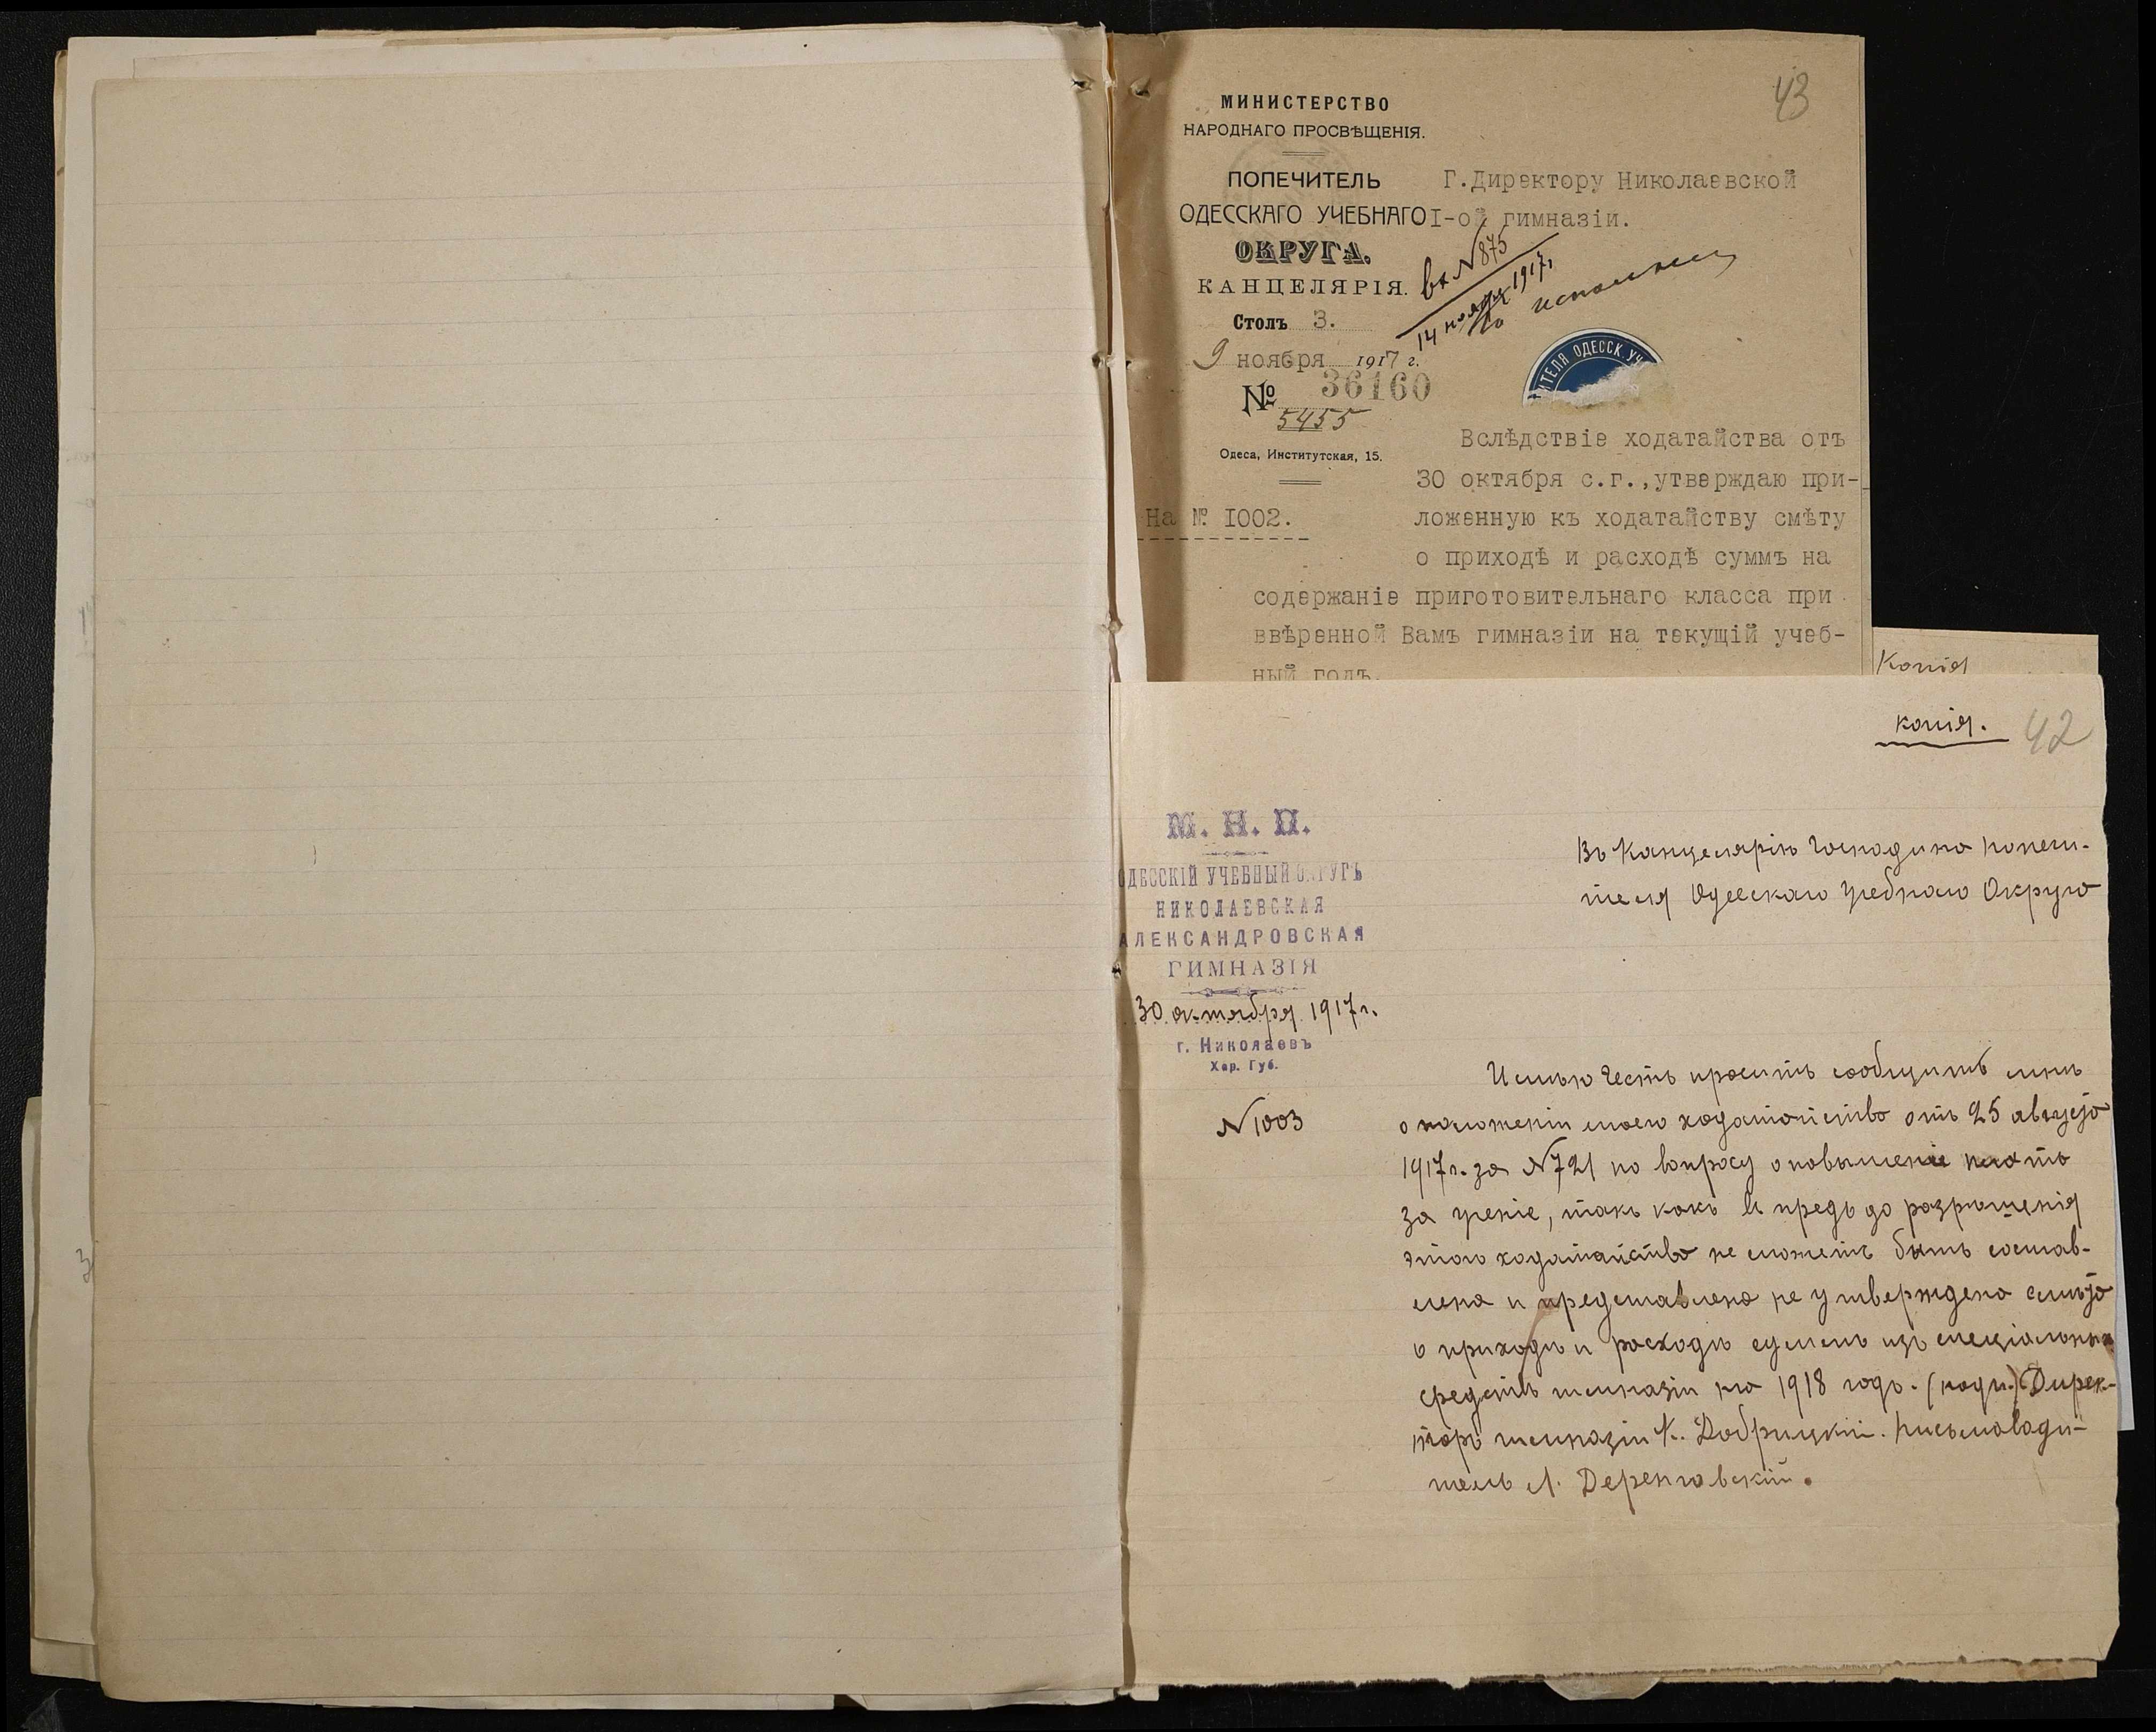 43
МИНИСТЕРСТВО
НАРОДНАГО ПРОСВѢЩЕНІЯ.
ПОПЕЧИТЕЛЬ
ОДЕССКАГО УЧЕБНАГО
ОКРУГА.
КАНЦЕЛЯРІЯ.
Столъ 3.
9 ноября 1917 г.
№ 36160
5455
Одеса, Институтская, 15.
На № I002.
Г.Директору Николаевской
I-ой гимназіи.
вх N 875
14 ноября 1917 г.
Къ исполненію
ИТЕЛЯ ОДЕССК. УЧ
Вслѣдствіе ходатайства отъ
30 октября с.г.,утверждаю при-
ложенную къ ходатайству смѣту
о приходѣ и расходѣ суммъ на
содержаніе приготовительнаго класса при
ввѣренной Вамъ гимназіи на текущій учеб-
ный годъ.
Копія
копія.
42
М. Н. П.
ОДЕССКІЙ УЧЕБНЫЙ ОКРУГЪ
НИКОЛАЕВСКАЯ
АЛЕКСАНДРОВСКАЯ
ГИМНАЗІЯ
30 октября 1917 г.
г. Николаевъ
Хер. Губ.
N 1003
Въ Канцелярію Господина Попечи-
теля Одесскаго Учебнаго Округа
Имѣю честь просить сообщить мнѣ
о положеніи моего ходатайства отъ 25 августа
1917 г. за N 721 по вопросу о повышеніе платы
за ученіе, такъ какъ впредь до разрѣшенія
этого ходатайства не можетъ быть состав-
лена и представлена на утвержденіе смѣта
о приходѣ и расходѣ суммъ изъ спеціальныхъ
средствъ гимназіи на 1918 годъ. (подп.) Дирек-
торъ гимназіи К. Добрицкій. Письмоводи-
тель Л. Деренговскій.